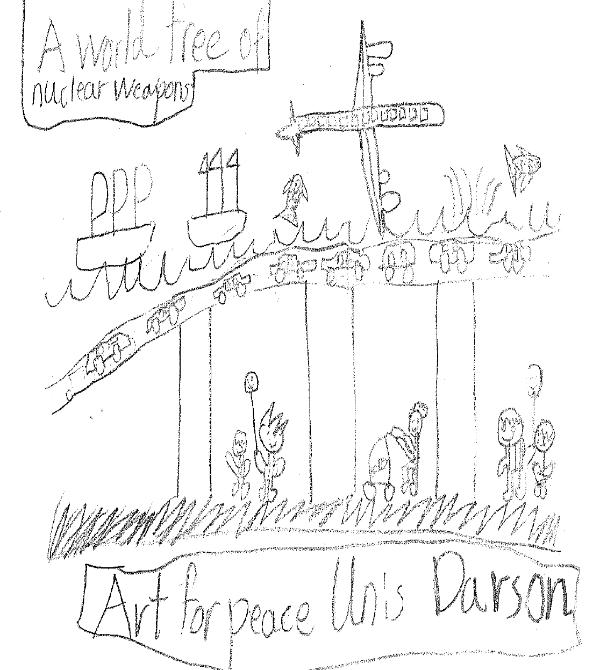 A world free of
nuclear weapons
Art for peace Unis Darson